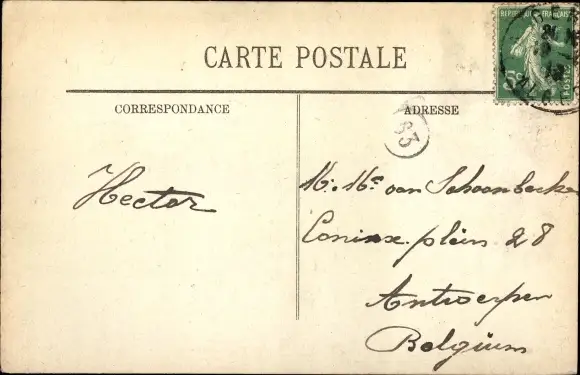 CARTE POSTALE
RÉPUBLIQUE FRANÇAISE
5
POSTES
CORRESPONDANCE
ADRESSE
83
Hector
M. Mr van Schoonbecke
Coninx plein 28
Antwerpen
Belgïum